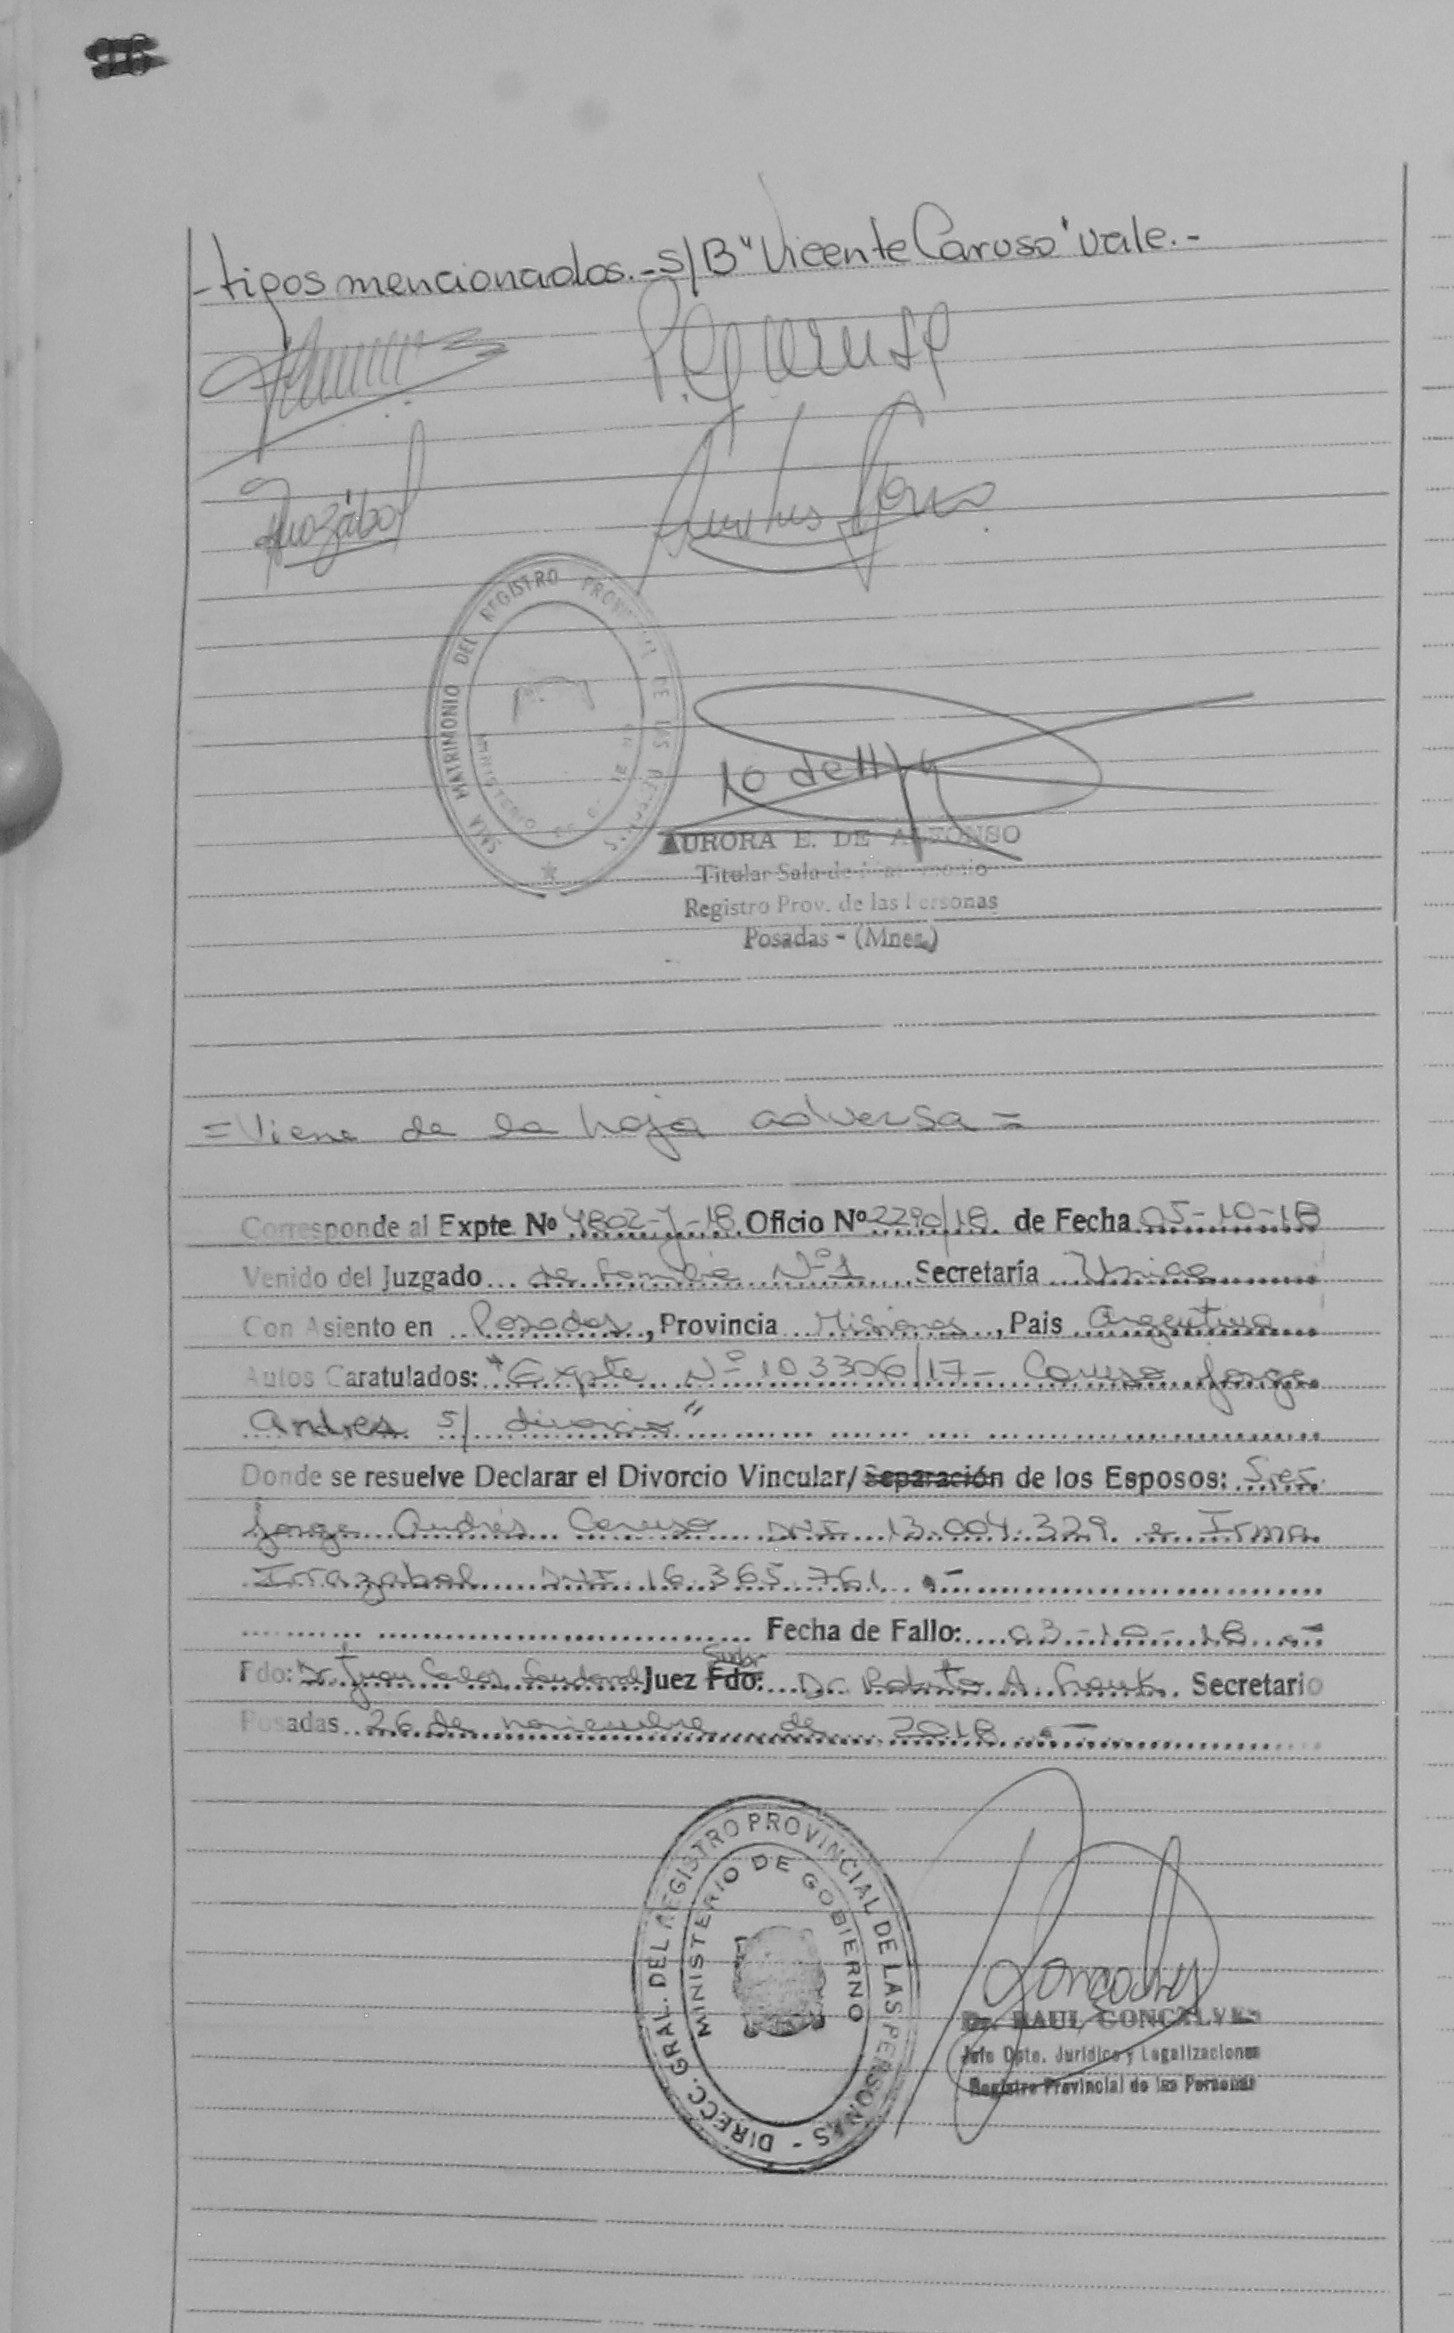 -tipos mencionados.-S/B "Vicente Caruso" vale.-
SALA MATRIMONIO DEL REGISTRO PROVINCIAL DE LAS PERSONAS
MINISTERIO
AURORA E. DE ALFONSO
Titular Sala de Matrimonio
Registro Prov. de las Personas
Posadas - (Mnes.)
=Viene de la hoja adversa=
Corresponde al Expte. Nº 4802-J-18 Oficio Nº 2290/18 de Fecha 05-10-18
Venido del Juzgado de Familia Nº 1 Secretaría Unica
Con Asiento en Posadas, Provincia Misiones, Pais Argentina
Autos Caratulados: "Expte Nº 103306/17 - Caruso Jorge
Andres s/ divorcio"
Donde se resuelve Declarar el Divorcio Vincular/Separación de los Esposos: Sres.
Jorge Andrés Caruso DNI 13.004.329 e Irma
Irrazabal DNI 16.365.761 .-
Fecha de Fallo: 03-10-18 .-
Fdo: Dr. Juan Carlos Juez Fdo: Dr. Roberto A. Secretario
Posadas 26 de noviembre de 2018 .-
DIRECC. GRAL. DEL REGISTRO PROVINCIAL DE LAS PERSONAS -
MINISTERIO DE GOBIERNO
Dr. RAUL GONCALVES
Jefe Dpto. Jurídico y Legalizaciones
Registro Provincial de las Personas